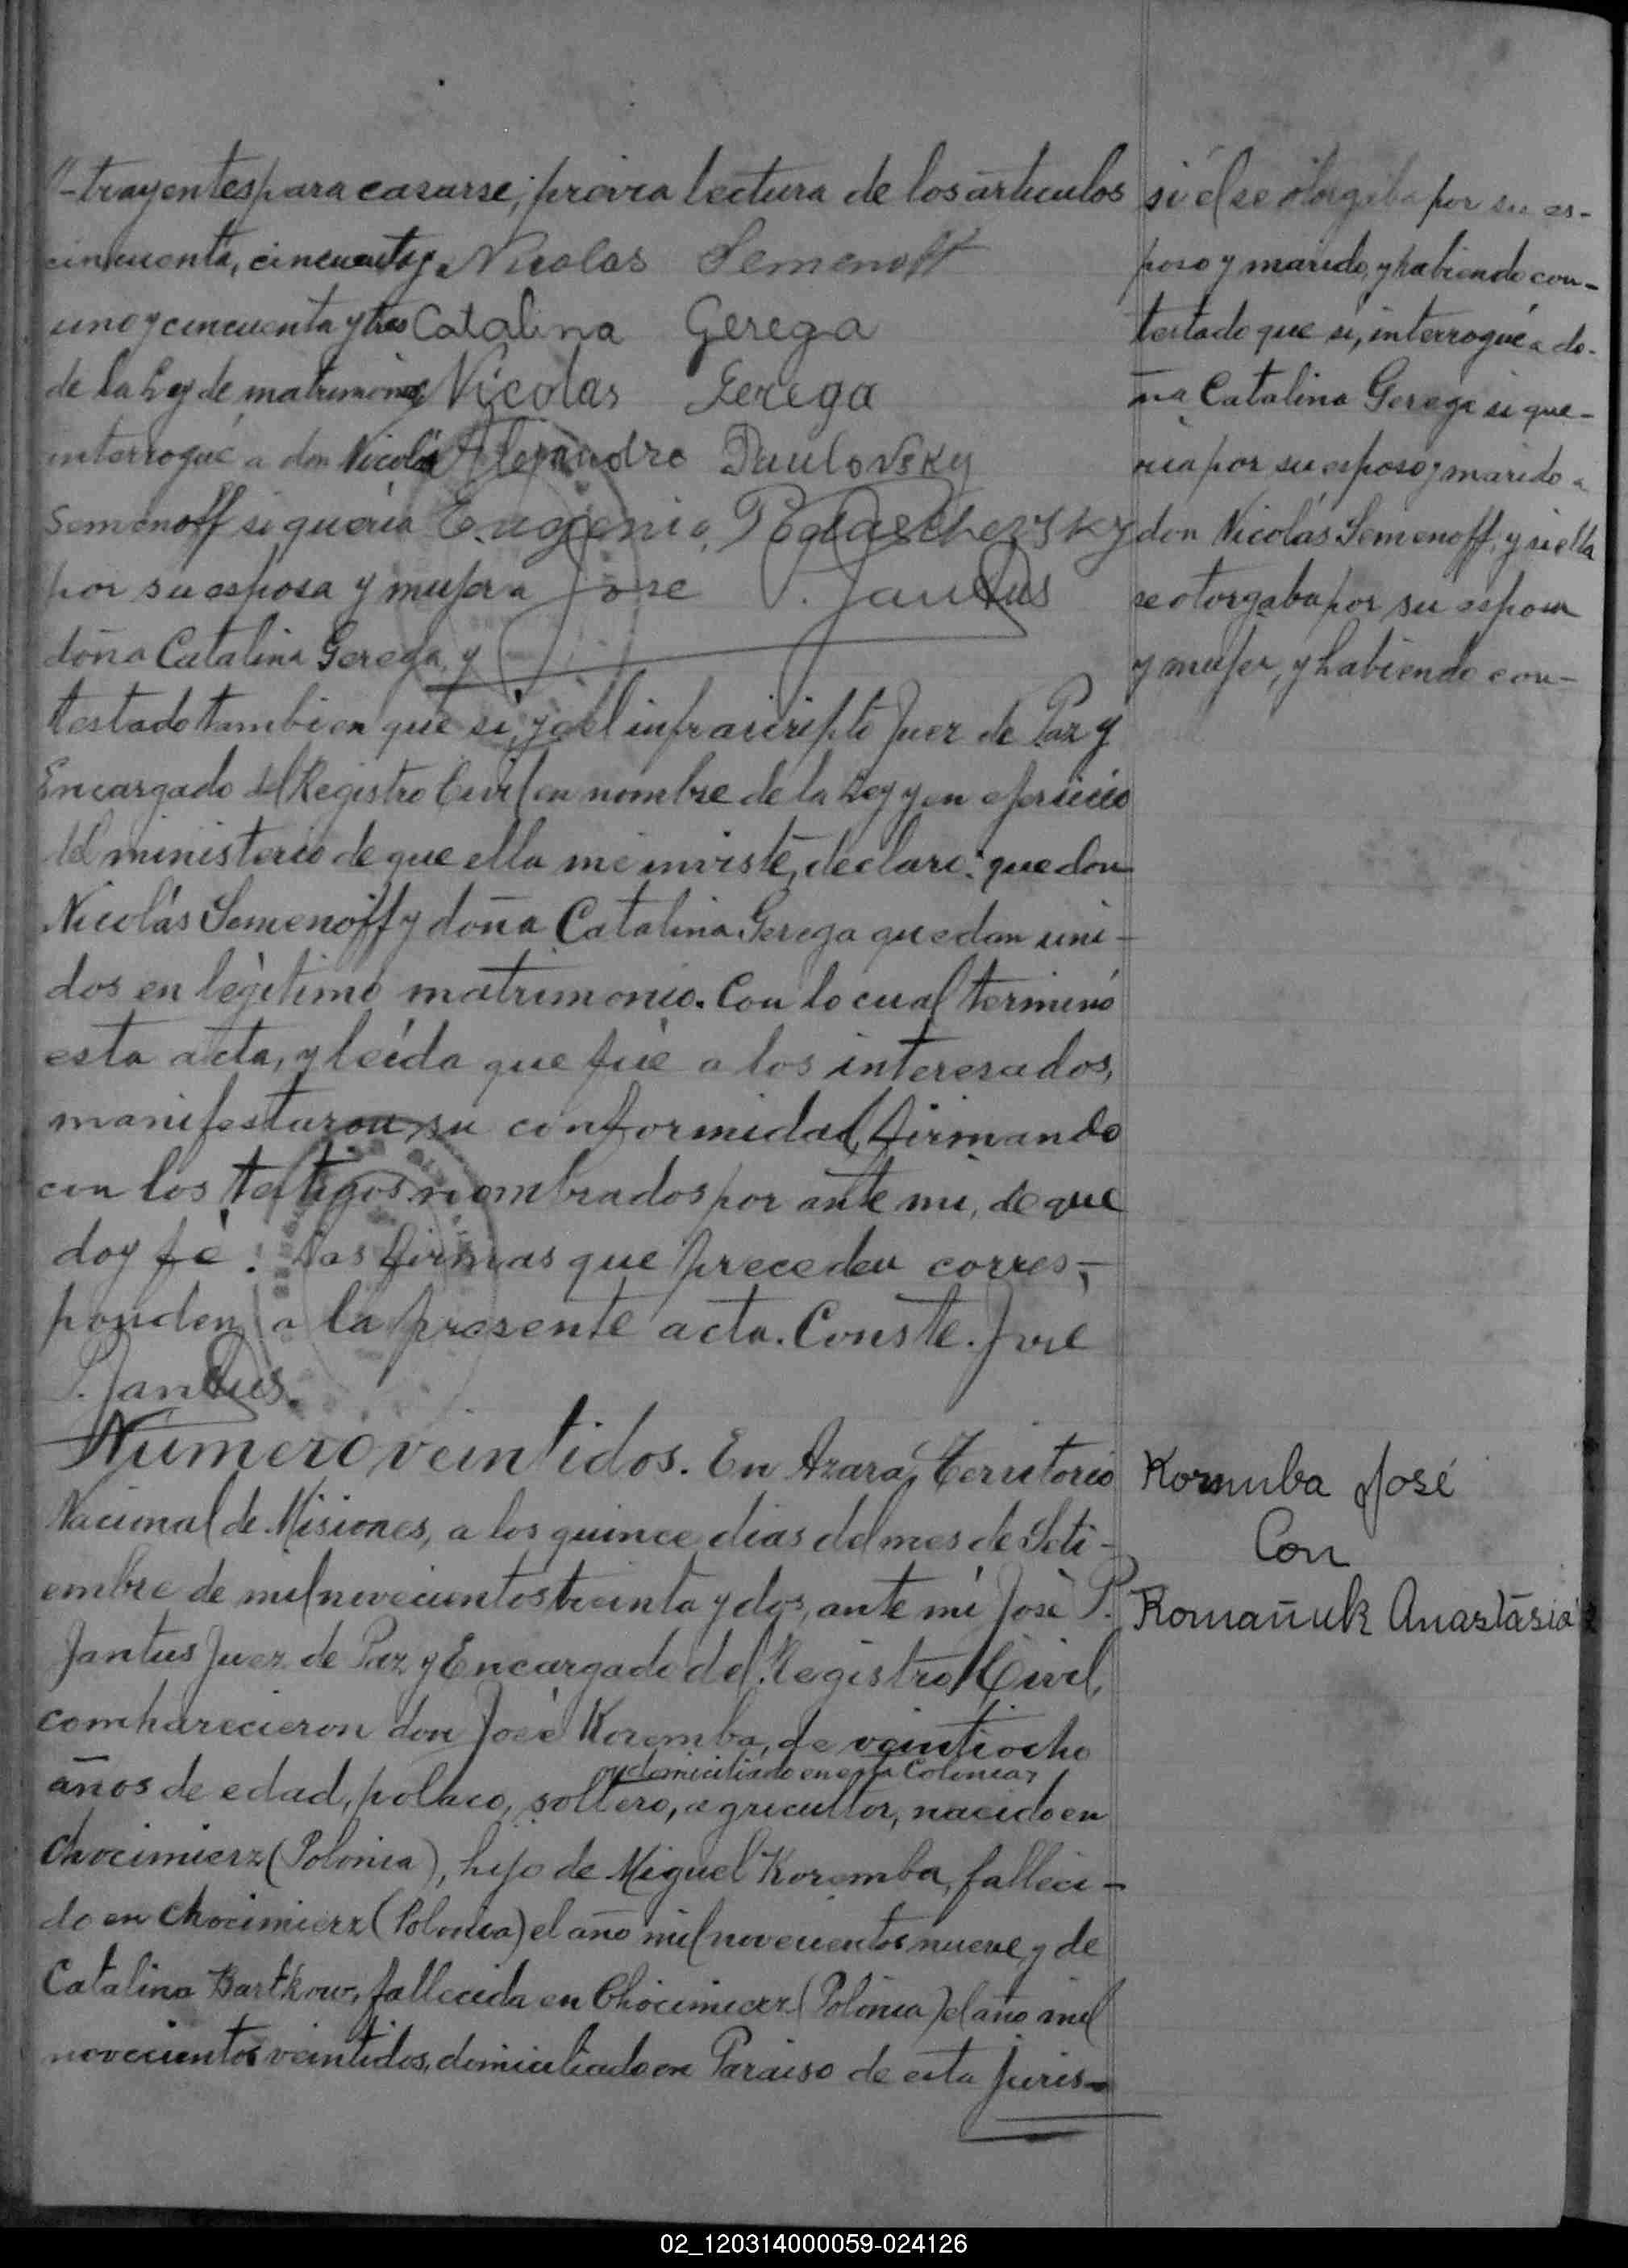 "-trayentes para casarse, previa lectura de los artículos
cincuenta, cincuenta y
uno y cincuenta y tres
de la Ley de matrimonio,
interrogué a don Nicolás
Semenoff si quería
por su esposa y mujer a
doña Catalina Gerega, y
Nicolas Semenoff
Catalina Gerega
Nicolas Gerega
Alejandro Paulovsky
Eugenio
José P. Jantus
si él se otorgaba por su es-
poso y marido, y habiendo con-
testado que si, interrogué a do-
ña Catalina Gerega si que-
ria por su esposo y marido a
don Nicolás Semenoff, y si ella
se otorgaba por su esposa
y mujer, y habiendo con-
testado tambien que si, yo el infrascripto Juez de Paz y
Encargado del Registro Civil en nombre de la Ley y en ejercicio
del ministerio de que ella me inviste, declaro: que don
Nicolás Semenoff y doña Catalina Gerega quedan uni-
dos en legítimo matrimonio. Con lo cual terminó
esta acta, y leída que fué a los interesados,
manifestaron su conformidad, firmando
con los testigos nombrados por ante mi, de que
doy fé. Las firmas que preceden corres-
ponden a la presente acta. Conste. José
P. Jantus.
Número veintidos. En Azara, Territorio
Nacional de Misiones, a los quince dias del mes de Seti-
embre de mil novecientos treinta y dos, ante mí José P.
Jantus Juez de Paz y Encargado del Registro Civil,
comparecieron don José Koremba, de veintiocho
y domiciliado en esta Colonia,
años de edad, polaco, soltero, agricultor, nacido en
Chocimierz (Polonia), hijo de Miguel Koremba, falleci-
do en Chocimierz (Polonia) el año mil novecientos nueve, y de
Catalina Bartkow, fallecida en Chocimierz (Polonia) el año mil
novecientos veintidos, domiciliado en Paraiso de esta Juris-
Kornuba José
Con
Romañuk Anastasia
02_120314000059-024126